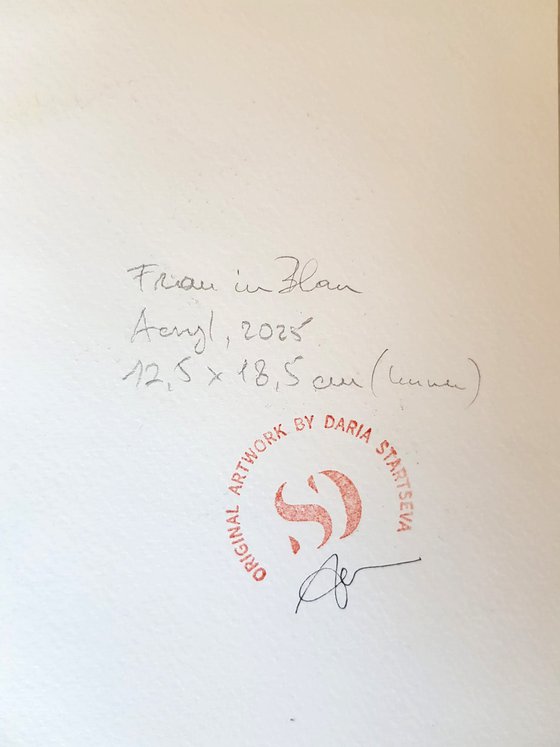 Frau in Blau
Acryl, 2025
12,5 x 18,5 cm (innen)
ORIGINAL ARTWORK BY DARIA STARTSEVA
SD